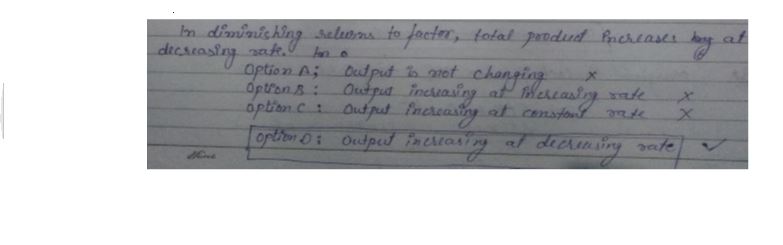 In diminishing returns to factor, total product increases at
decreasing rate.
Option A; Output is not changing x
Option B: Output increasing at increasing rate x
Option C: Output increasing at constant rate x
Option D: Output increasing at decreasing rate ✓